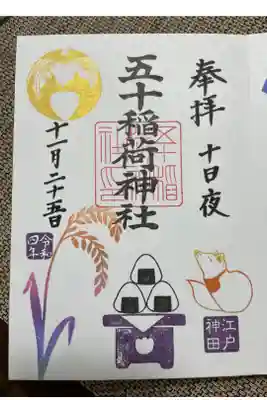 奉拝 十日夜
五十稲荷神社
十一月二十五日
令和
四年
江戸
神田